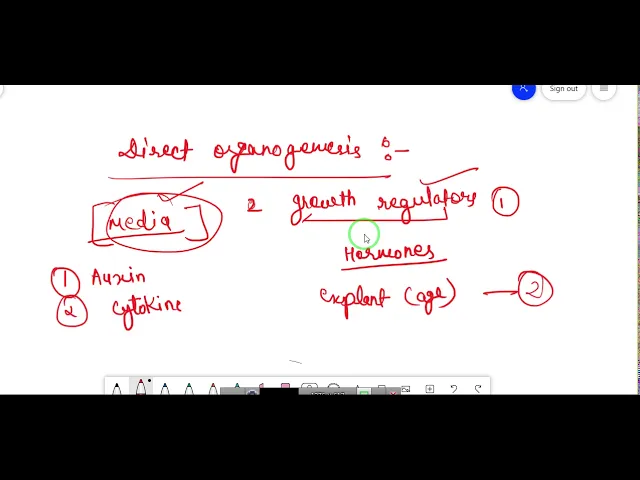 Sign out
Direct organogenesis :-
[Media] 2 growth regulators ①
Hormones
① Auxin
explant (age) → ②
② Cytokine